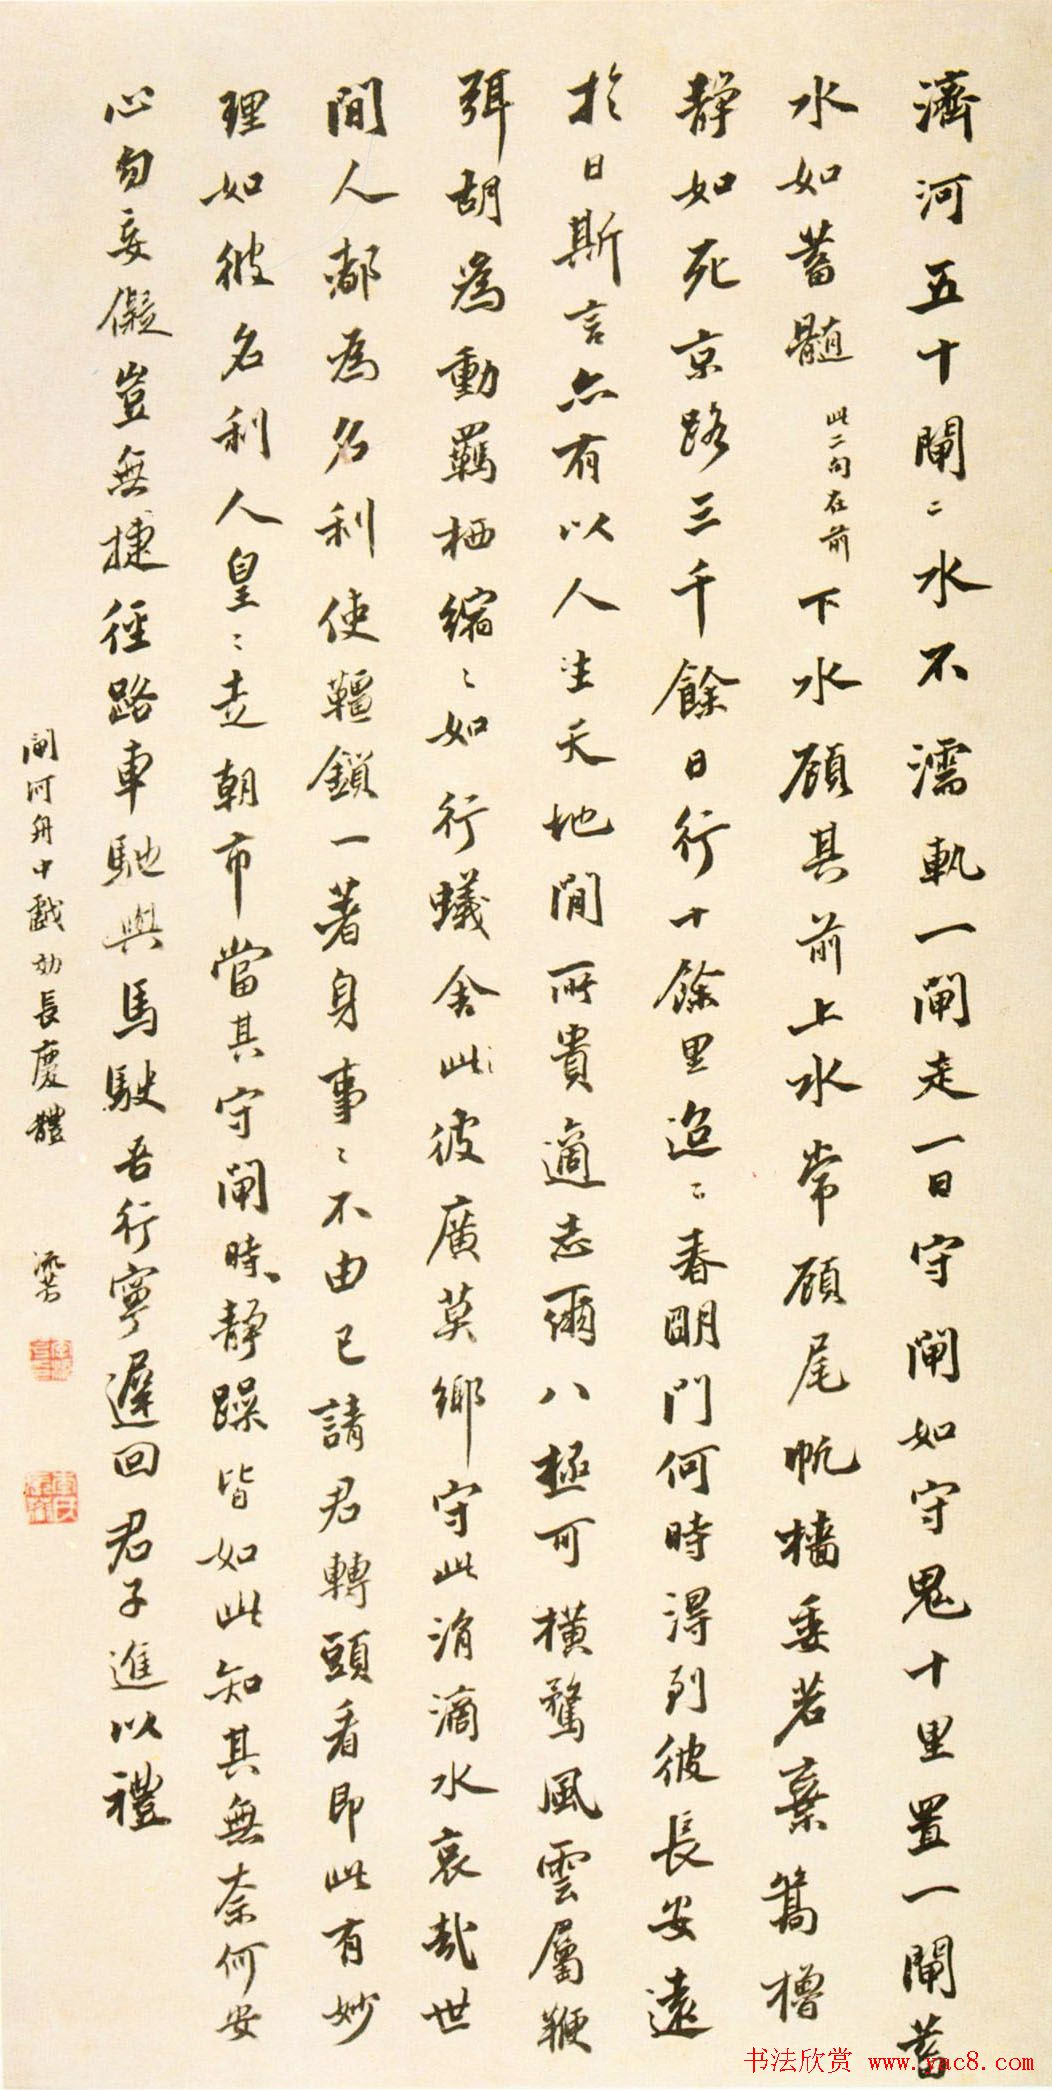 濟河五十閘〻水不濡軌一閘走一日守閘如守鬼十里置一閘蓄
水如蓄髓此二句在前下水顧其前上水常顧尾帆檣委若棄篙櫓
靜如死京路三千餘日行十餘里迢〻春明門何時得到彼長安遠
於日斯言亦有以人生天地間所貴適志爾八極可橫騖風雲屬鞭
弭胡為動羈栖縮〻如行蟻舍此彼廣莫鄉守此涓滴水哀哉世
間人都為名利使韁鎖一著身事〻不由己請君轉頭看即此有妙
理如彼名利人皇〻走朝市當其守閘時靜躁皆如此知其無奈何安
心勿妄儗豈無捷徑路車馳與馬駛吾行寧遲回君子進以禮
閘河舟中戲効長慶體
書法欣賞 www.yac8.com